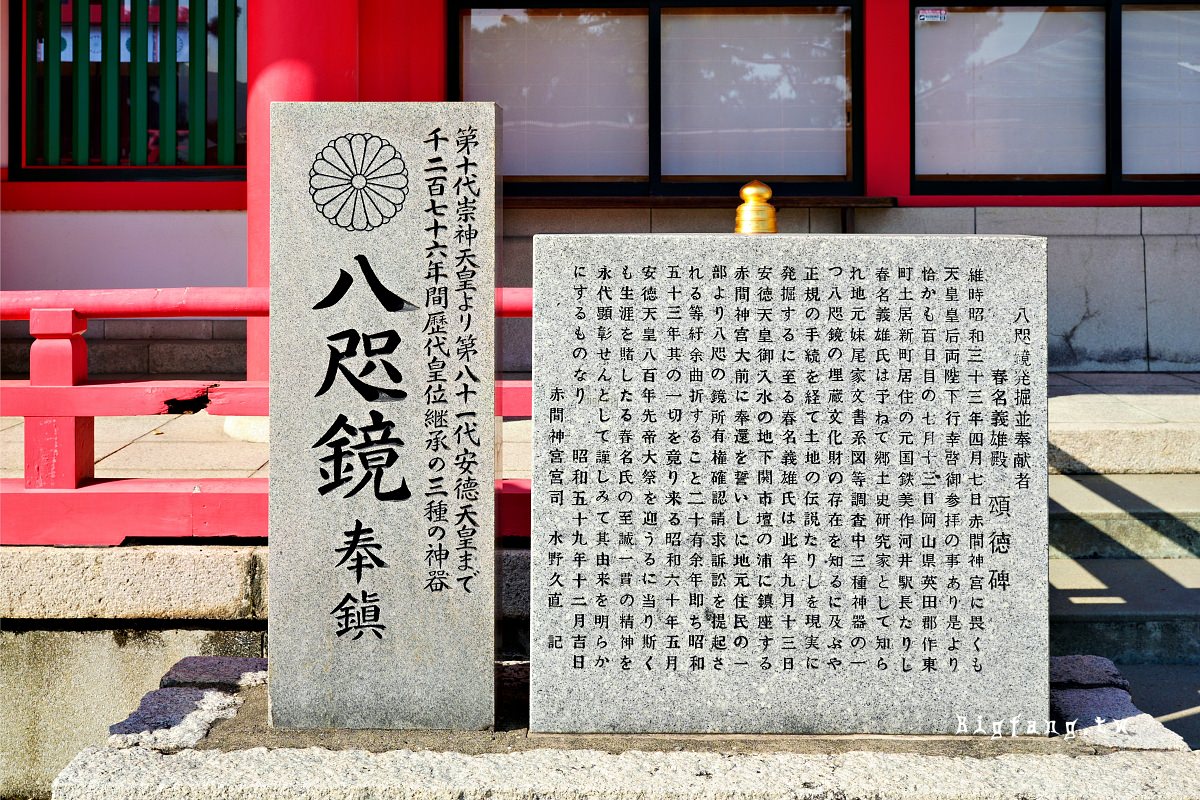 第十代崇神天皇より第八十一代安徳天皇まで
千二百七十六年間歴代皇位継承の三種の神器
八咫鏡 奉鎭
八咫鏡発掘並奉献者
春名義雄殿 頌徳碑
維時昭和三十三年四月七日赤間神宮に畏くも
天皇皇后両陛下行幸啓御参拝の事あり是より
恰かも百日目の七月十二日岡山県英田郡作東
町土居新町居住の元国鉄美作河井駅長たりし
春名義雄氏は予ねて郷土史研究家として知ら
れ地元妹尾家文書系図等調査中三種神器の一
つ八咫鏡の埋蔵文化財の存在を知るに及ぶや
正規の手続を経て土地の伝説たりしを現実に
発掘するに至る春名義雄氏は此年九月十三日
安徳天皇御入水の地下関市壇の浦に鎮座する
赤間神宮大前に奉還を誓いしに地元住民の一
部より八咫の鏡所有権確認請求訴訟を提起さ
れる等紆余曲折すること二十有余年即ち昭和
五十三年其の一切を竟り来る昭和六十年五月
安徳天皇八百年先帝大祭を迎うるに当り斯く
も生涯を賭したる春名氏の至誠一貫の精神を
永代顕彰せんとして謹しみて其由来を明らか
にするものなり 昭和五十九年十二月吉日
赤間神宮宮司 水野久直 記
Bigfang.tw